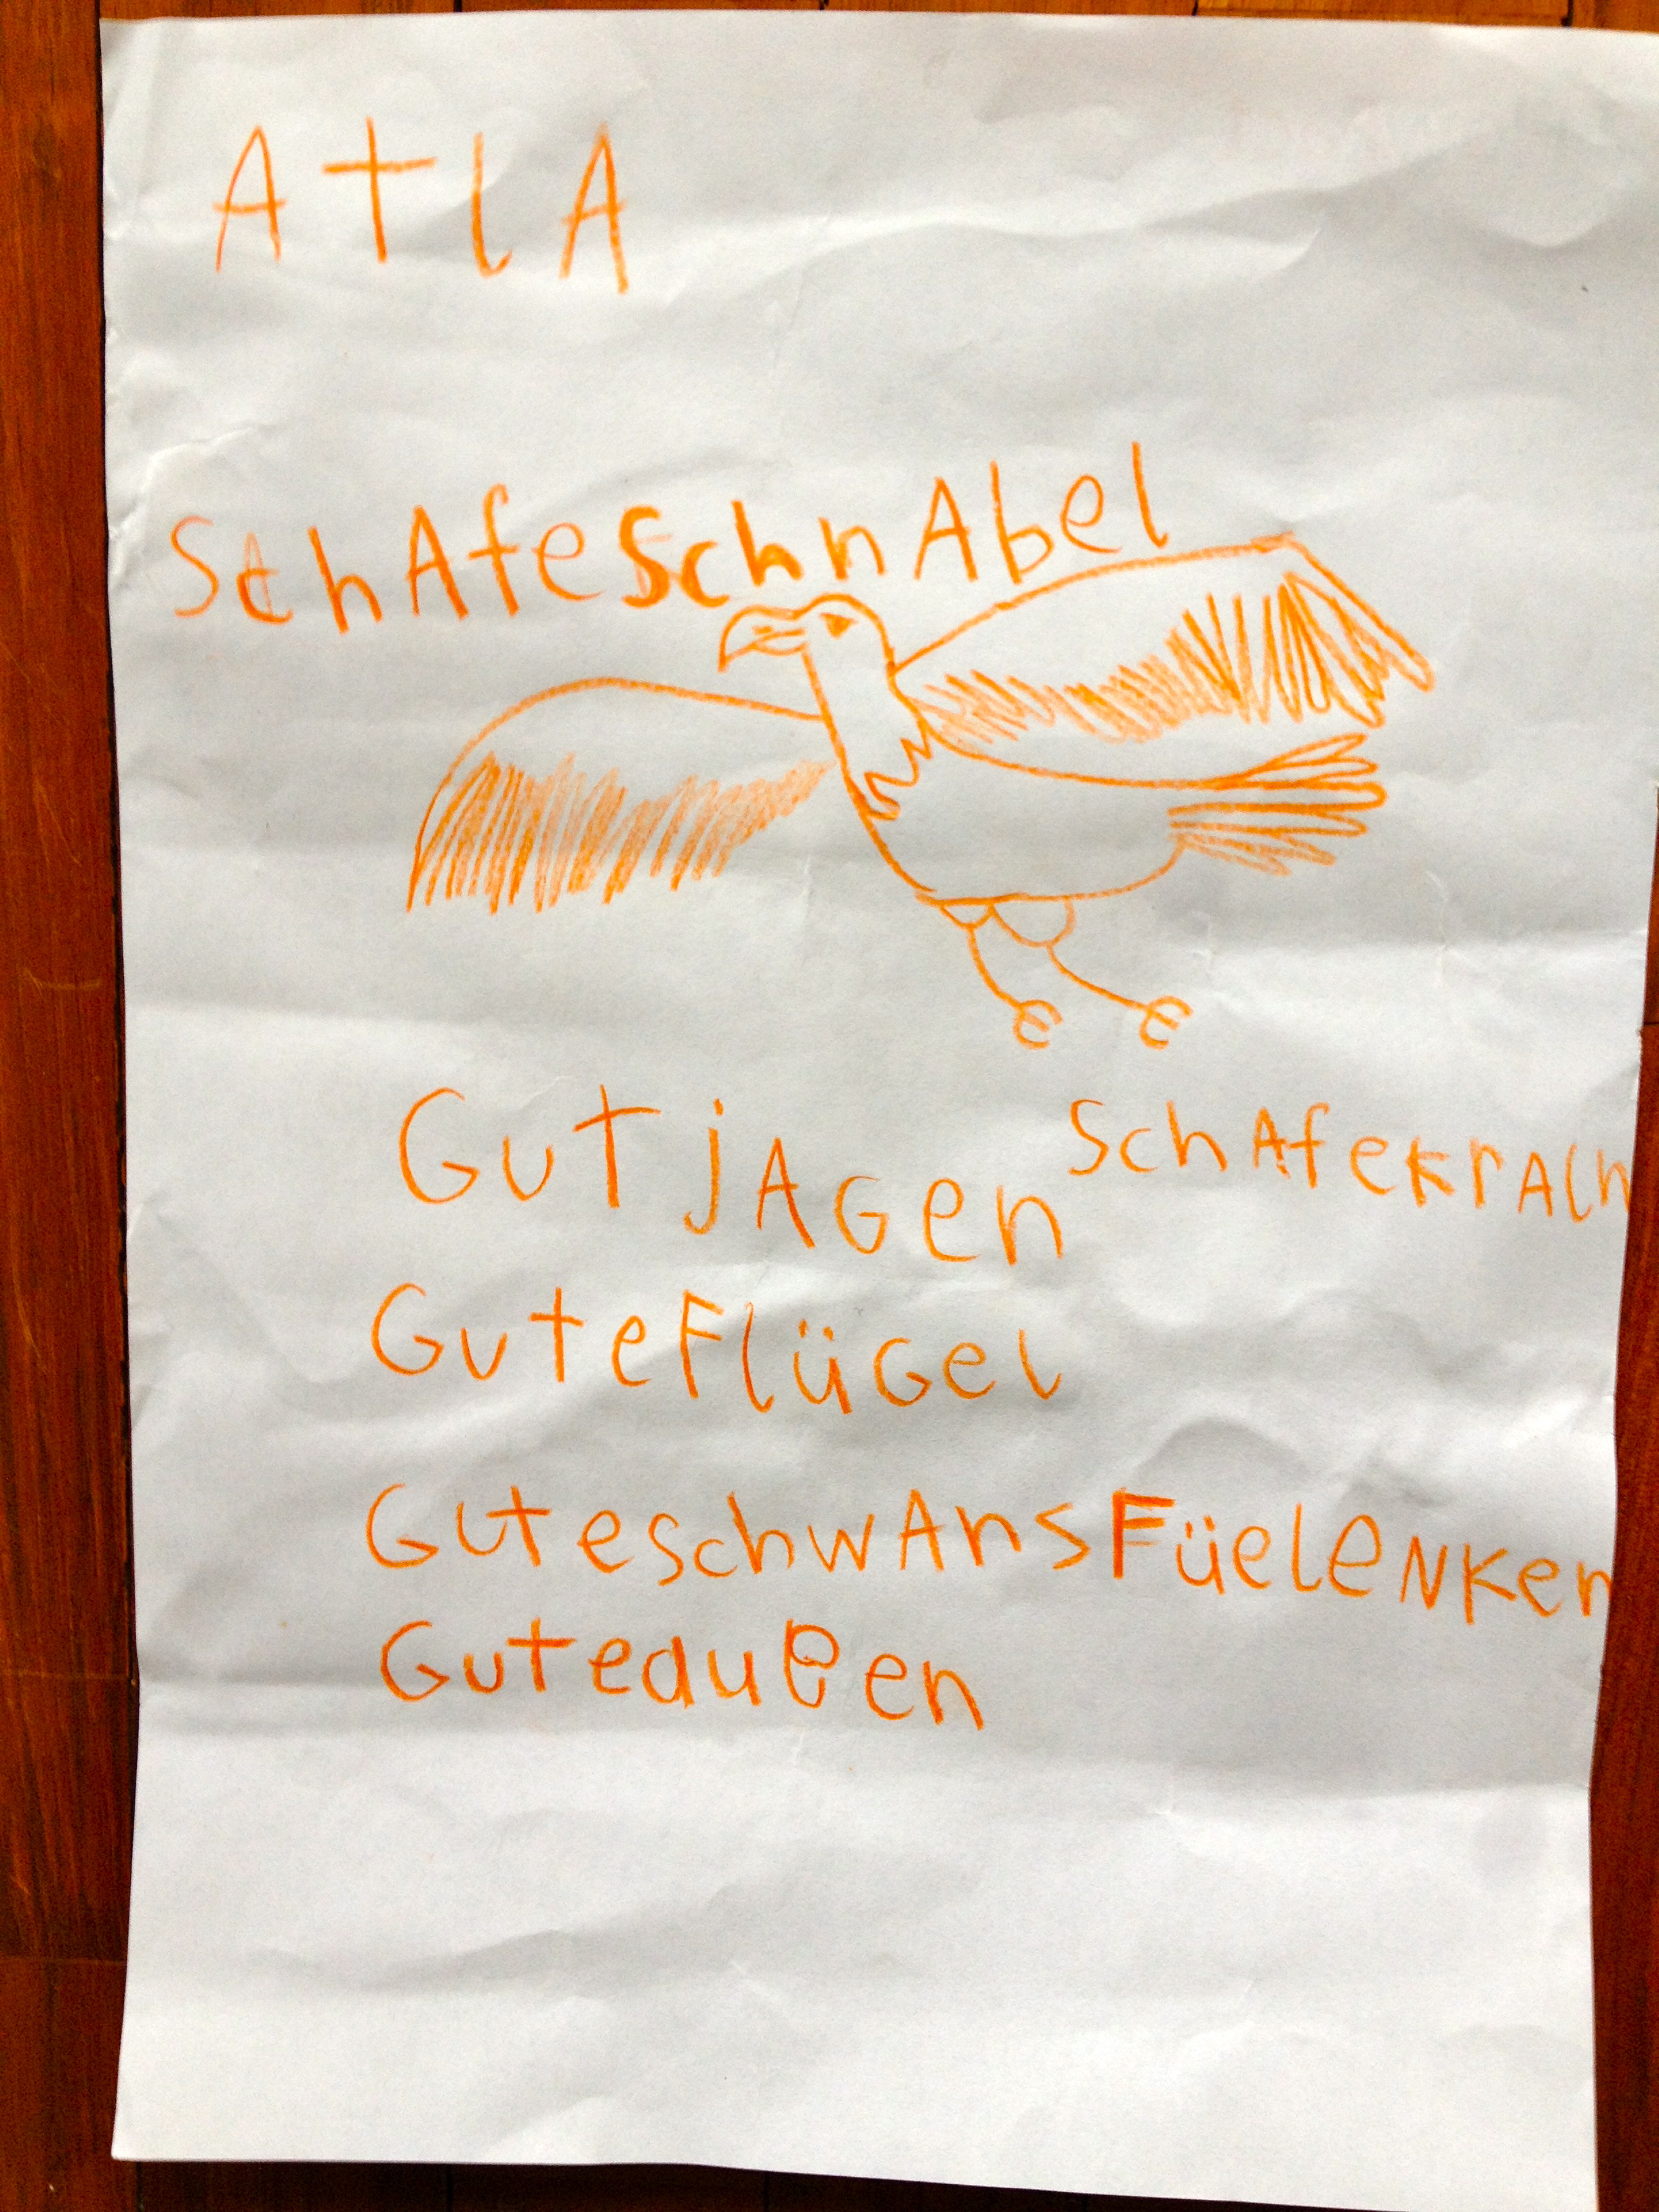 AtlA
SchAfeschnAbel
GuT jAGen
SchAfekrAln
GuteFlüGel
GuteschwAnsFüelenken
Guteaugen